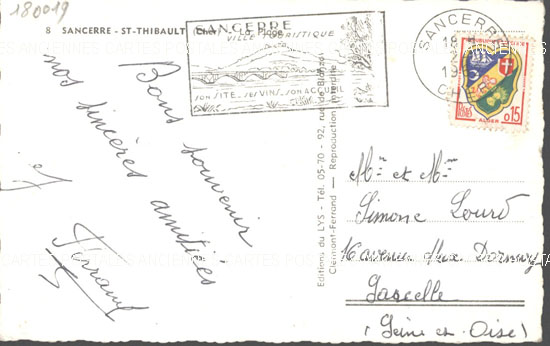 180019
8 SANCERRE - ST-THIBAULT (Cher) - La Plage
SANCERRE
VILLE TOURISTIQUE
SON SITE _ SES VINS _ SON ACCUEIL
SANCERRE
CHER
REPUBLIQUE FRANÇAISE
POSTES
ALGER
0,15
Bons souvenir
nos sincères amitiés
Editions du LYS - Tél. 05-70 - 92, rue
Clermont-Ferrand — Reproduction interdite
Mr et Mme
Simone Lourd
16 avenue Max Dormoy
(Seine et Oise)
CARTES POSTALES ANCIENNES CARTES POSTALES